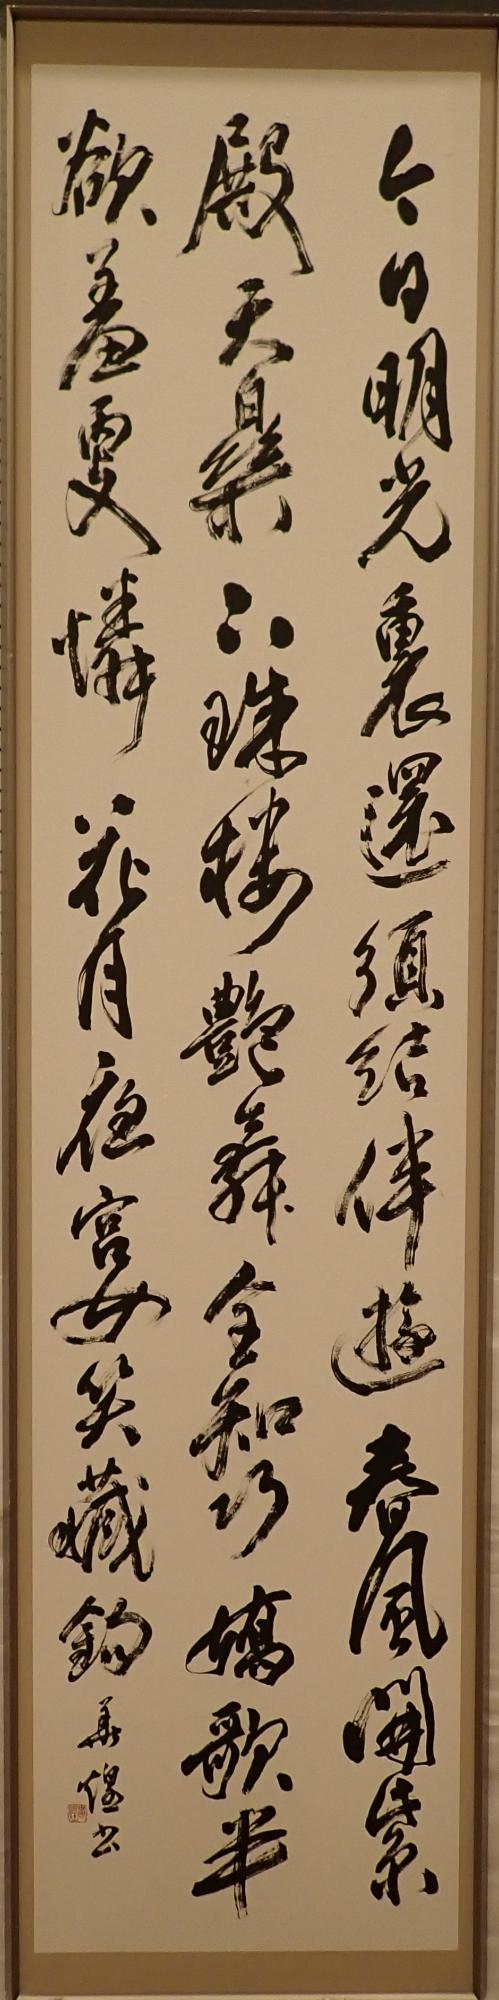 今日明光裏還須結伴遊春風開紫
殿天樂下珠楼艶舞全知巧嬌歌半
欲羞更憐花月夜宮女笑藏鉤
書